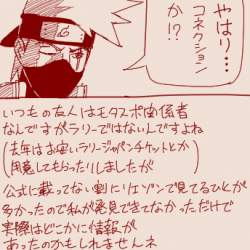 やはり…
コネクション
か!?
いつもの友人はモタスポ関係者
なんですがラリーではないんですよね
(去年はお安いラリージャパンチケットとか
用意してもらったりしましたが)
公式に載ってない割にリエゾンで見てるひとが
多かったので私が発見できてなかっただけで
実際はどこかに情報が
あったのかもしれませんネ